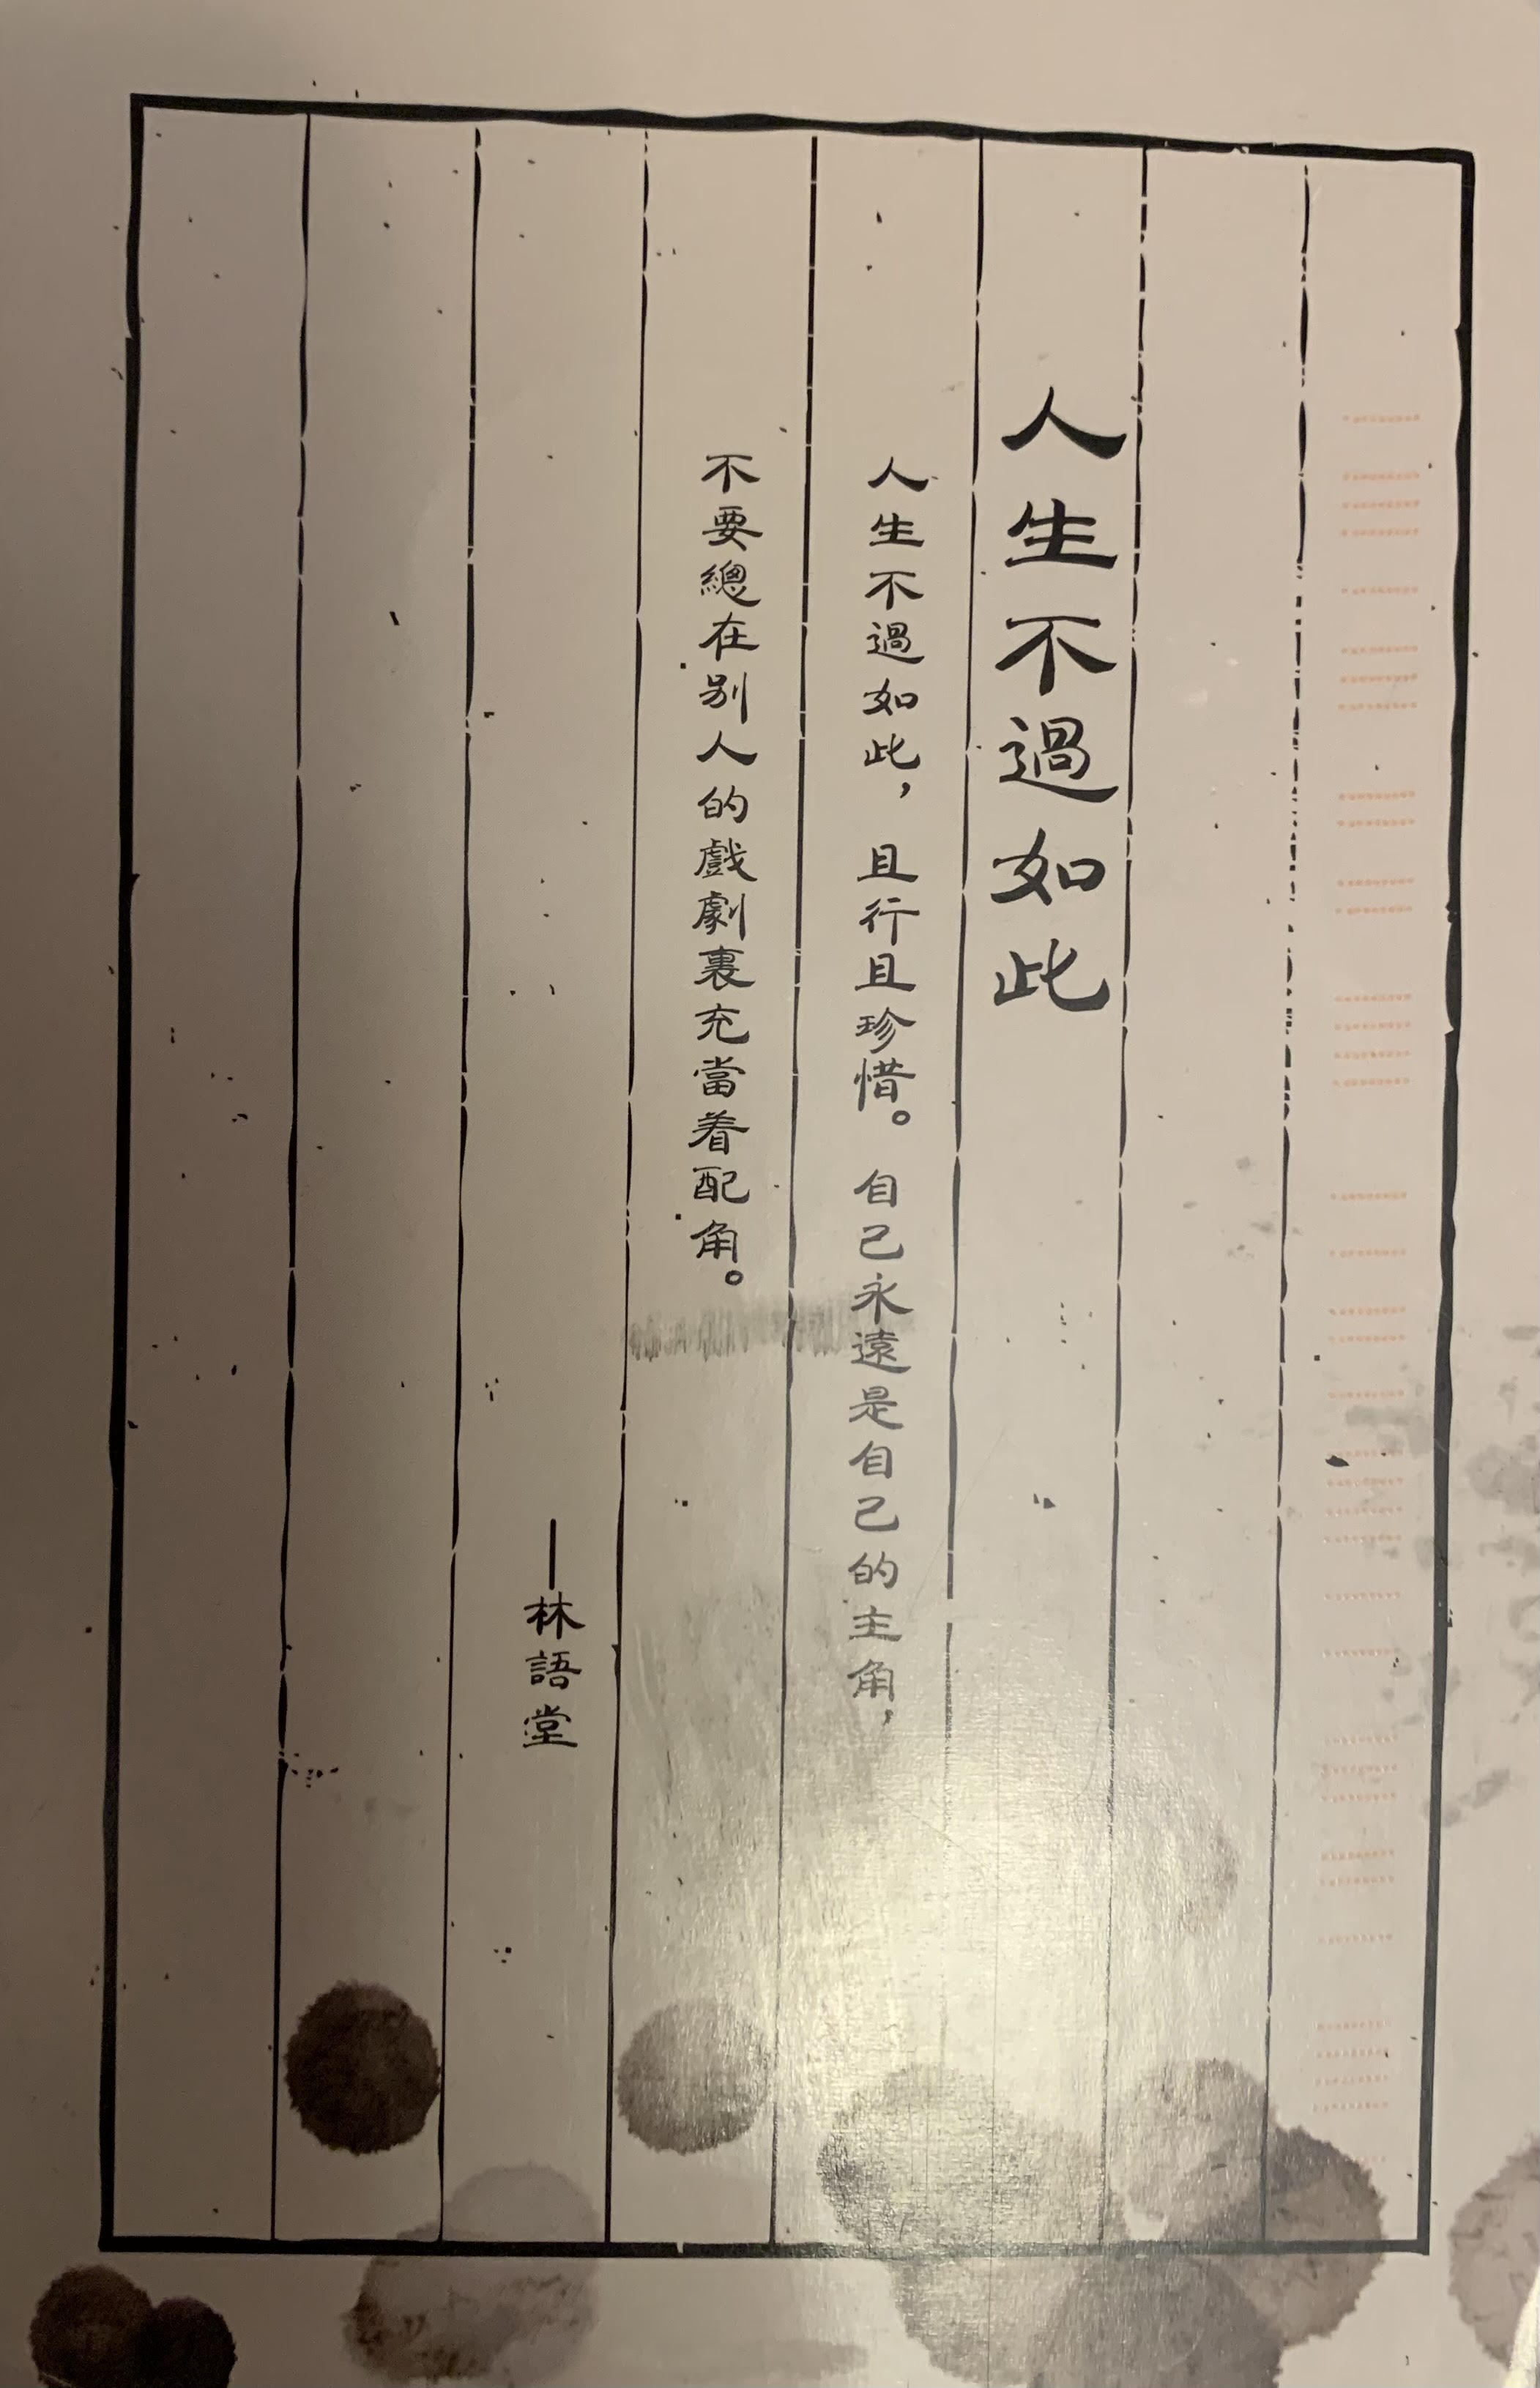 人生不過如此
人生不過如此，且行且珍惜。自己永遠是自己的主角，
不要總在别人的戲劇裏充當着配角。
——林語堂